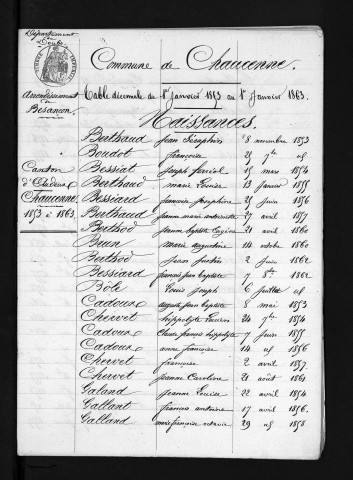 Département
du Doubs
Arrondissement
de
Besançon
Canton
d'Audeux
Chaucenne
1853 à 1863
Commune de Chaucenne.
Table décennale du 1er Janvier 1853 au 1er Janvier 1863.
Naissances.
Berthaud Jean Séraphin 8 novembre 1853
Boudot françoise 25 7bre id
Bessiat Joseph 15 mars 1854
Berthaud marie Louise 13 Janvier 1855
Bessiard françoise Joséphine 25 Juin 1856
Berthaud Jeanne marie 27 avril 1857
Berthod Jeanne baptiste 21 avril 1860
Brun marie augustine 14 octobre 1860
Berthod Jean Justin 2 Juin 1862
Bessiard françois Jean baptiste 7 8bre 1862
Bôle Louis Joseph 6 Juillet id
Cadoux auguste Jean baptiste 8 mai 1853
Chervet hippolyte 24 7bre 1854
Cadoux Claude francois hippolyte 7 Juin 1855
Cadoux anne françoise 14 id 1856
Chervet françoise 2 avril 1857.
Chervet Jeanne Caroline 21 août 1861
Galand Jeanne Louise 22 avril 1854
Gallant francois antoine 17 avril 1856.
Galland marie françoise octavie 29 id 1858